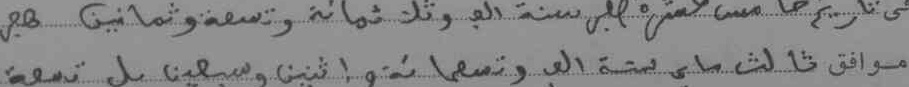 في تاريخ خامس عشره الجر سنة الف وثلاثمائة وتسعة وثمانين هجر
موافق ثالث ماي سنة الف وتسعمائة واثنين وسبعين بل تسعة